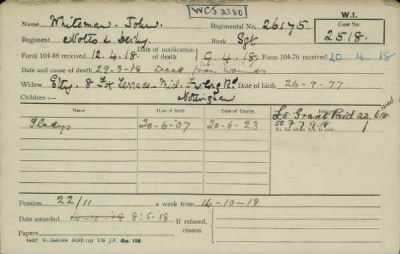 WCS 3380
W.1.
2518.
Name, Whiteman - John. Regimental No. 26175.
Regiment Notts & Derby Rank Sgt
Form 104-88 received, 12.4.18. Date of notification of death, 9.4.18. Form 104-76 received 20.4.18
Date and cause of death 29-3-18 Dead from wounds
Widow, 8 Terrace, Rd. Date of birth 26-9-77
Children:— Nottingham
Gladys 20-6-07 20-6-23
£5 Grant Paid
Pension, 22/11 a week from 14-10-18
Date awarded 8-5-18 If refused, reason,
Papers